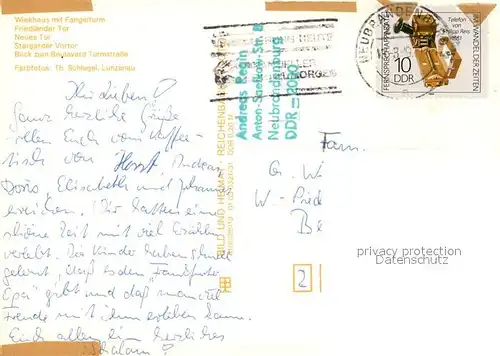 Wiekhaus mit Fangelturm
Friedländer Tor
Neues Tor
Stargarder Vortor
Blick zum Beyloevard Turmstraße
Farbfotos: Th. Schlegel, Lunzenau
NEUBRANDENBURG
Telefon von Philipp Reis
FERNSPRECHAPPARATE
IM WANDEL DER ZEITEN
10
DDR
Andreas Regin
Anton-Saefkow-Str. 8
Neubrandenburg
DDR - 20
BILD UND HEIMAT REICHENBACH
Ihr Lieben!
Ganz herzliche Grüße
sollen Euch vom Kaffee-
tisch von Horst, Andreas,
Doris, Elisabeth und Johannes
erreichen. Wir hatten eine
schöne Zeit mit viel Erzählen
verlebt. Die Kinder haben schnell
gelernt, daß es den "Frankfurter
Opa" gibt und daß man viel
Freude mit ihm erleben kann.
Euch allen ein herzliches
Schalom!
Fam.
G. Wi
W.-Pied
Be
2
privacy protection
Datenschutz